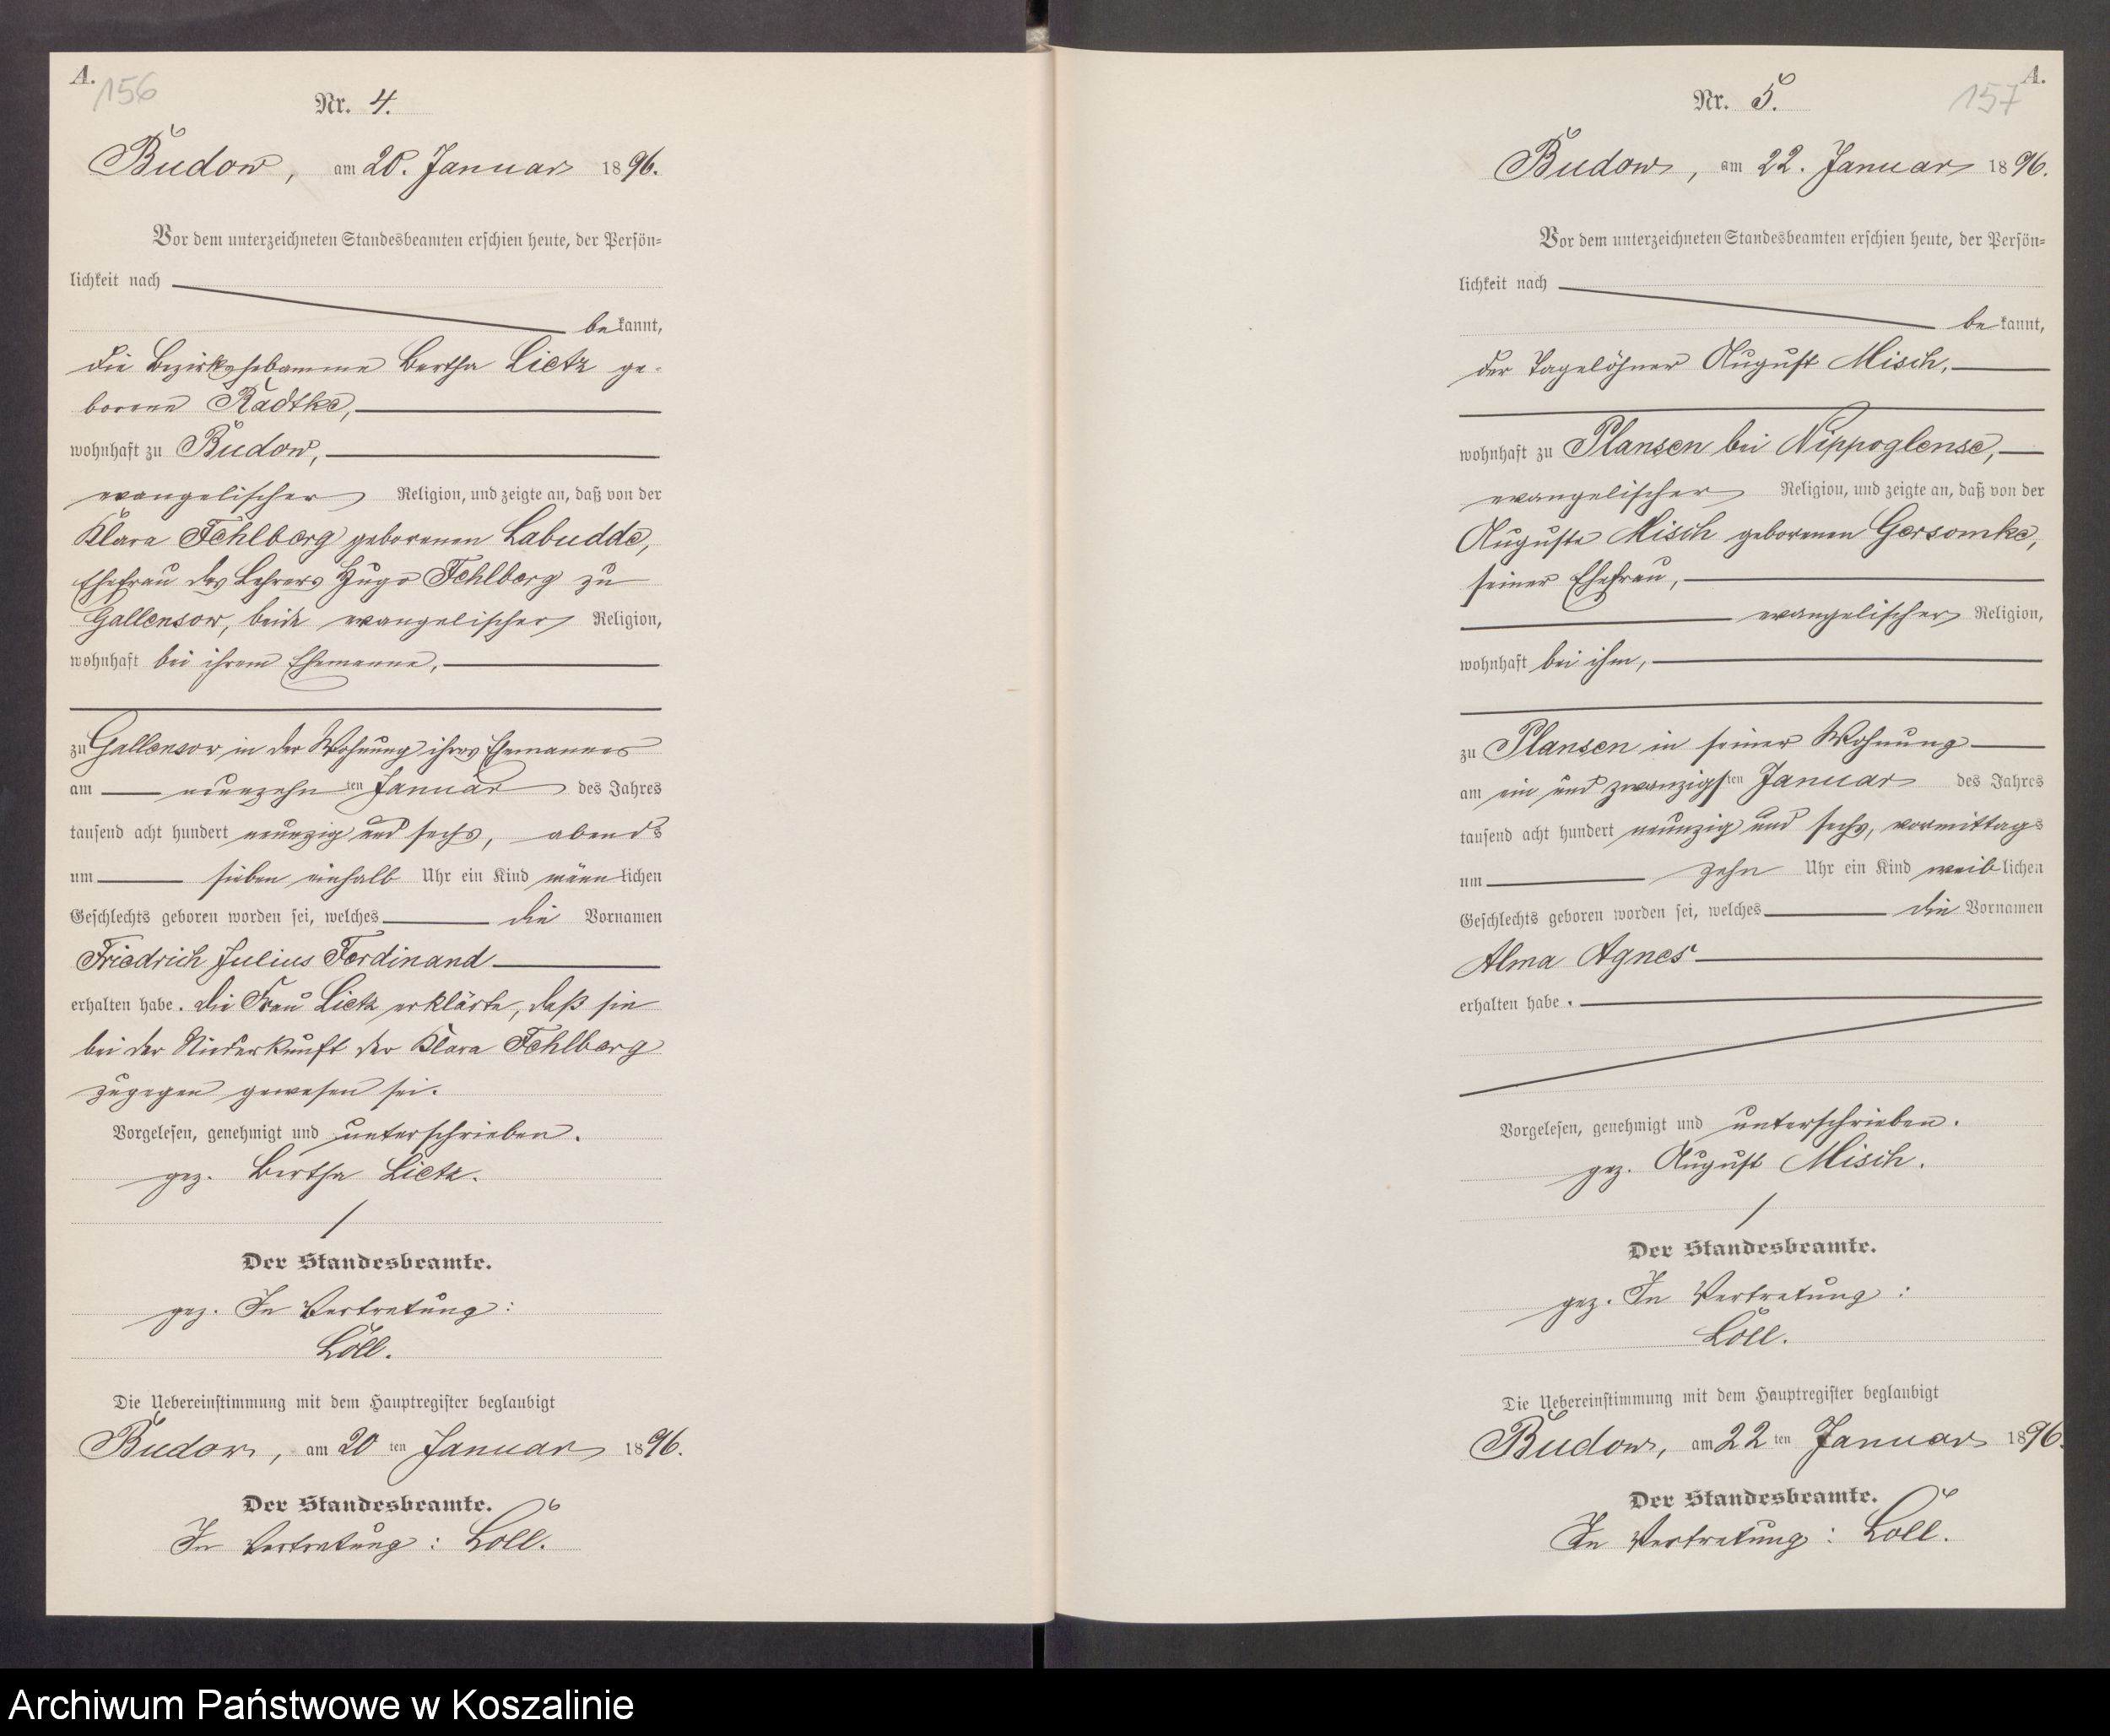 A.
156
Nr. 4.
Budow, am 20. Januar 1896.
Vor dem unterzeichneten Standesbeamten erschien heute, der Persön=
lichkeit nach
be kannt,
die Bezirkshebamme Bertha Lietz ge-
borene Radtke,
wohnhaft zu Budow,
evangelischer Religion, und zeigte an, daß von der
Klara Fehlberg geborenen Labudde,
Ehefrau des Lehrers Hugo Fehlberg zu
Gallensow, beide evangelischer Religion,
wohnhaft bei ihrem Ehemanne,
zu Gallensow in der Wohnung ihres Ehemannes
am neunzehn ten Januar des Jahres
tausend acht hundert neunzig und sechs, abends
um sieben einhalb Uhr ein Kind männ lichen
Geschlechts geboren worden sei, welches die Vornamen
Friedrich Julius Ferdinand
erhalten habe. Die Frau Lietz erklärte, daß sie
bei der Niederkunft der Klara Fehlberg
zugegen gewesen sei.
Vorgelesen, genehmigt und unterschrieben.
gez. Bertha Lietz.
Der Standesbeamte.
gez. In Vertretung:
Löll.
Die Uebereinstimmung mit dem Hauptregister beglaubigt
Budow, am 20 ten Januar 1896.
Der Standesbeamte.
In Vertretung: Löll.
A.
157
Nr. 5.
Budow, am 22. Januar 1896.
Vor dem unterzeichneten Standesbeamten erschien heute, der Persön=
lichkeit nach
be kannt,
der Tagelöhner August Misch,
wohnhaft zu Plansen bei Nippoglense,
evangelischer Religion, und zeigte an, daß von der
Auguste Misch geborenen Gersomke,
seiner Ehefrau,
evangelischer Religion,
wohnhaft bei ihm,
zu Plansen in seiner Wohnung
am ein und zwanzigsten Januar des Jahres
tausend acht hundert neunzig und sechs, vormittags
um zehn Uhr ein Kind weib lichen
Geschlechts geboren worden sei, welches die Vornamen
Alma Agnes
erhalten habe.
Vorgelesen, genehmigt und unterschrieben.
gez. August Misch.
Der Standesbeamte.
gez. In Vertretung:
Löll.
Die Uebereinstimmung mit dem Hauptregister beglaubigt
Budow, am 22 ten Januar 1896.
Der Standesbeamte.
In Vertretung: Löll.
Archiwum Państwowe w Koszalinie